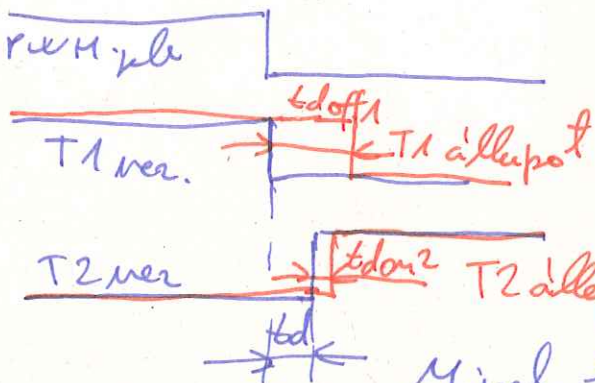 PWM jele
tdoff1
T1 vez. T1 állapot
tdon2
T2 vez T2 álla
td